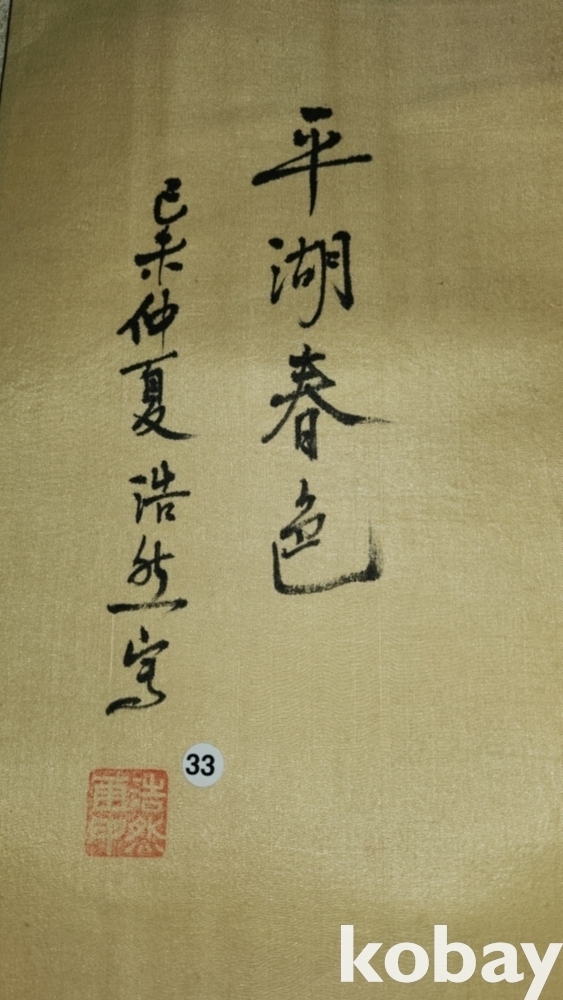 平湖春色
己未仲夏浩然写
33
浩然
画印
kobay